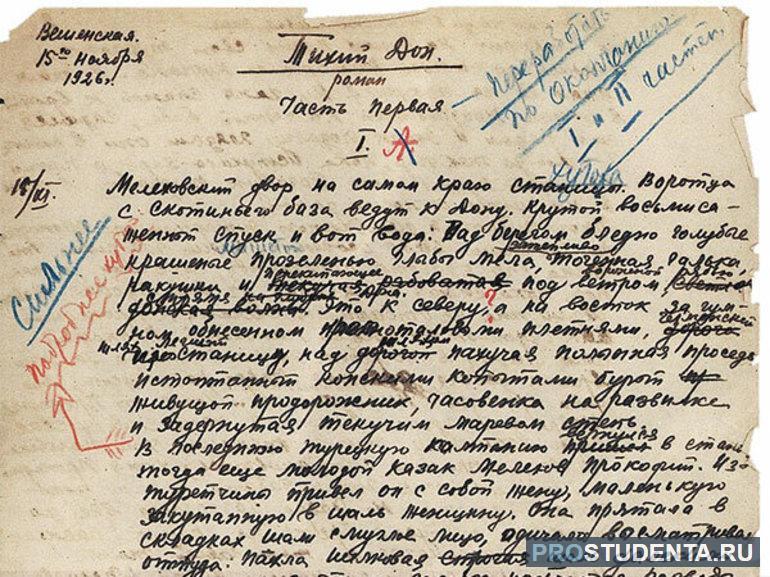 Вешенская.
15го ноября
1926г.
Тихий Дон.
роман
Часть первая
— переработать
по окончании
I и II частей
I.
15/XI.
хутора
Мелеховский двор на самом краю станицы. Воротца
с скотиньего база ведут к Дону. Крутой восьмиса-
женный спуск и вот вода: Над берегом бледно голубые
крашеные прозеленью глыбы мела, точеная галька
ракушки и текучая рябоватая под ветром,
донская волна. Это к северу, а на восток за гум-
ном, обнесенном плетнями,
станицу, над дорогой пахучая полынная проседь
истоптанный конскими копытами бурый
живущой придорожник, часовенка на развилке
и задернутая текучим маревом степь
В последнюю турецкую кампанию вернулся в стани
тогда еще молодой казак Мелехов Прокофий. Из
туретчины привел он с собой жену, маленькую
закутанную в шаль женщину. Она прятала в
складках шали смуглое лицо,
оттуда. Пахла шелковая
Сильнее
подробнее
PROSTUDENTA.RU